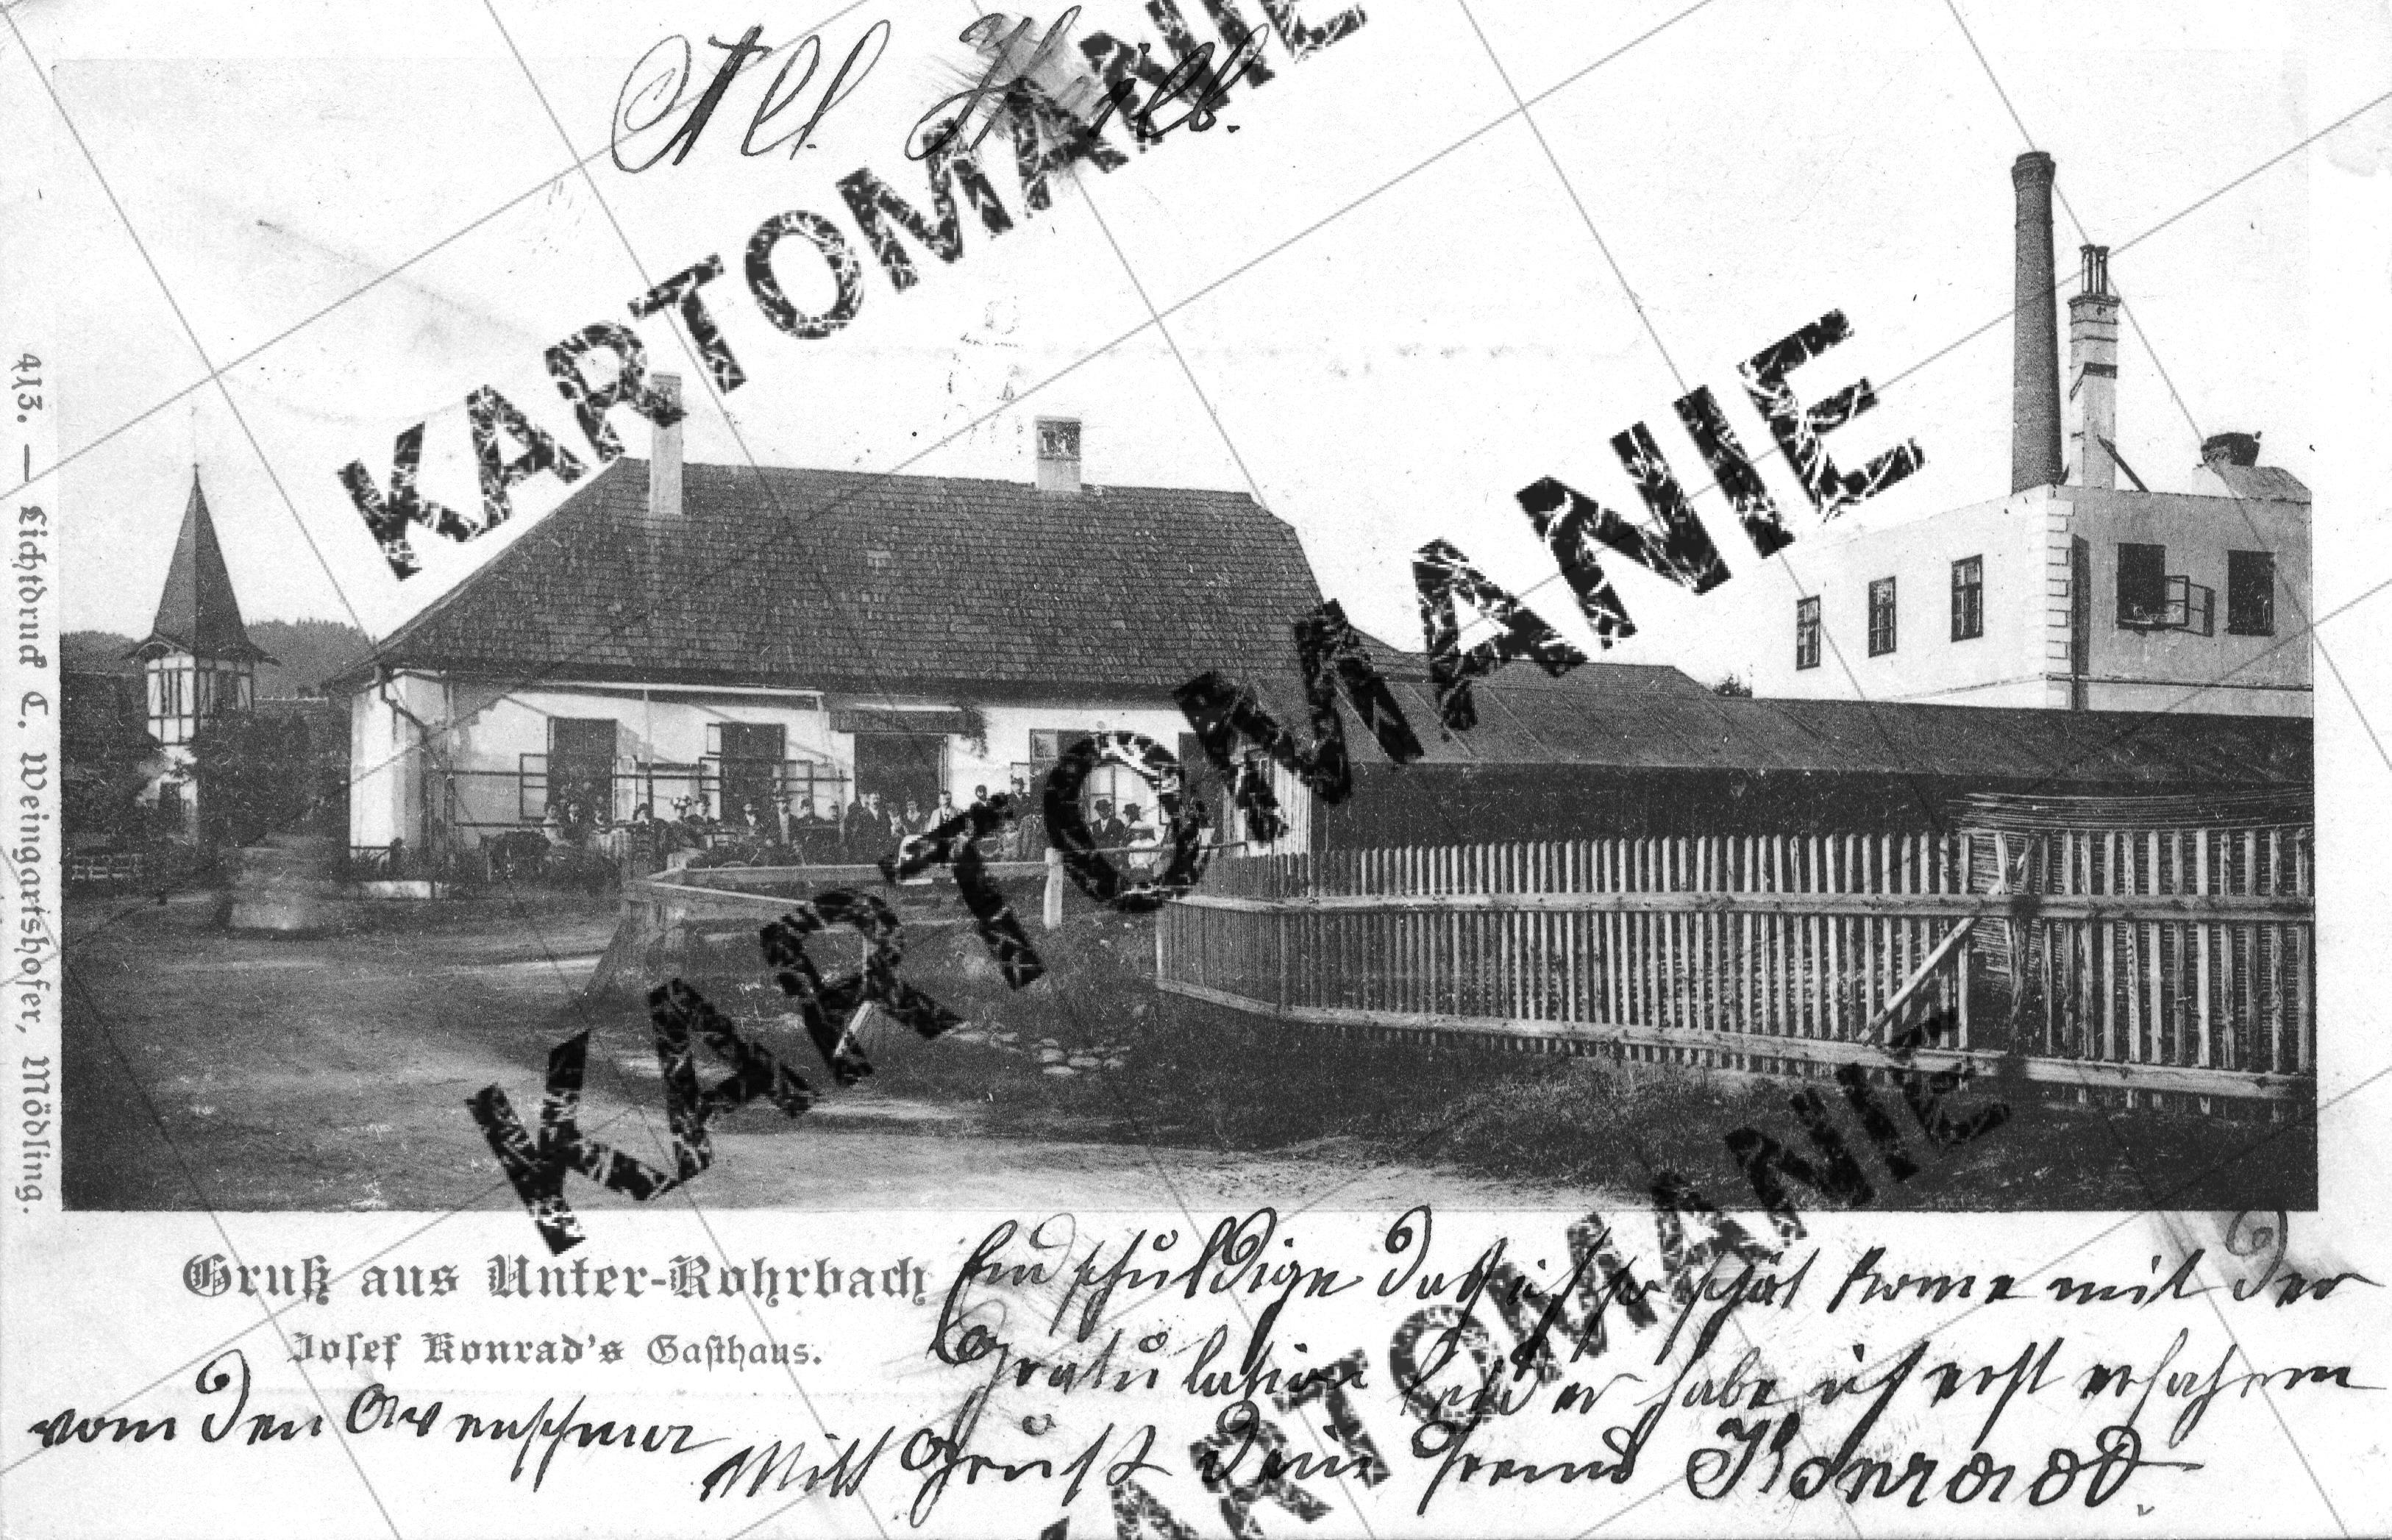 All Heil.
KARTOMANIE
KARTOMANIE
KARTOMANIE
413. — Lichtdruck C. Weingartshofer, Mödling.
Gruß aus Unter-Rohrbach
Josef Konrad's Gasthaus.
Endschuldige daß ich so spät kome mit der
Gratulation leider habe ich erst erfahren
vom den
Mitt Gruß dein Freund Konrad.